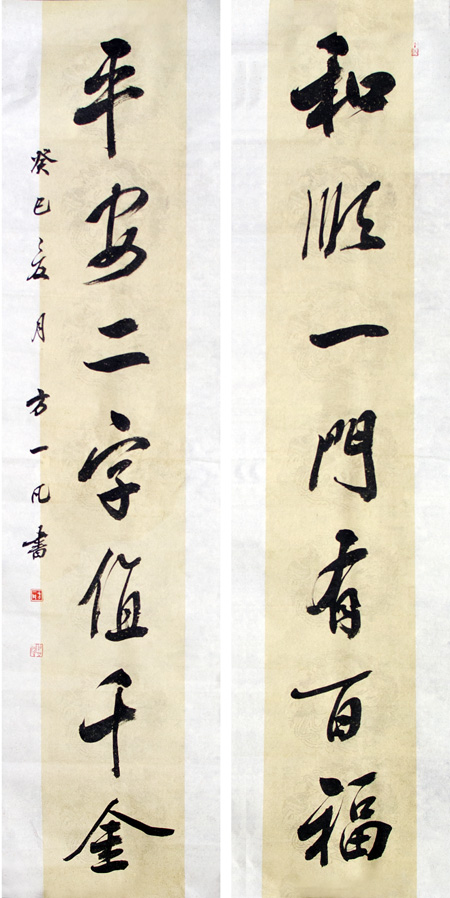 和順一門有百福
平安二字值千金
癸巳夏月方一凡書